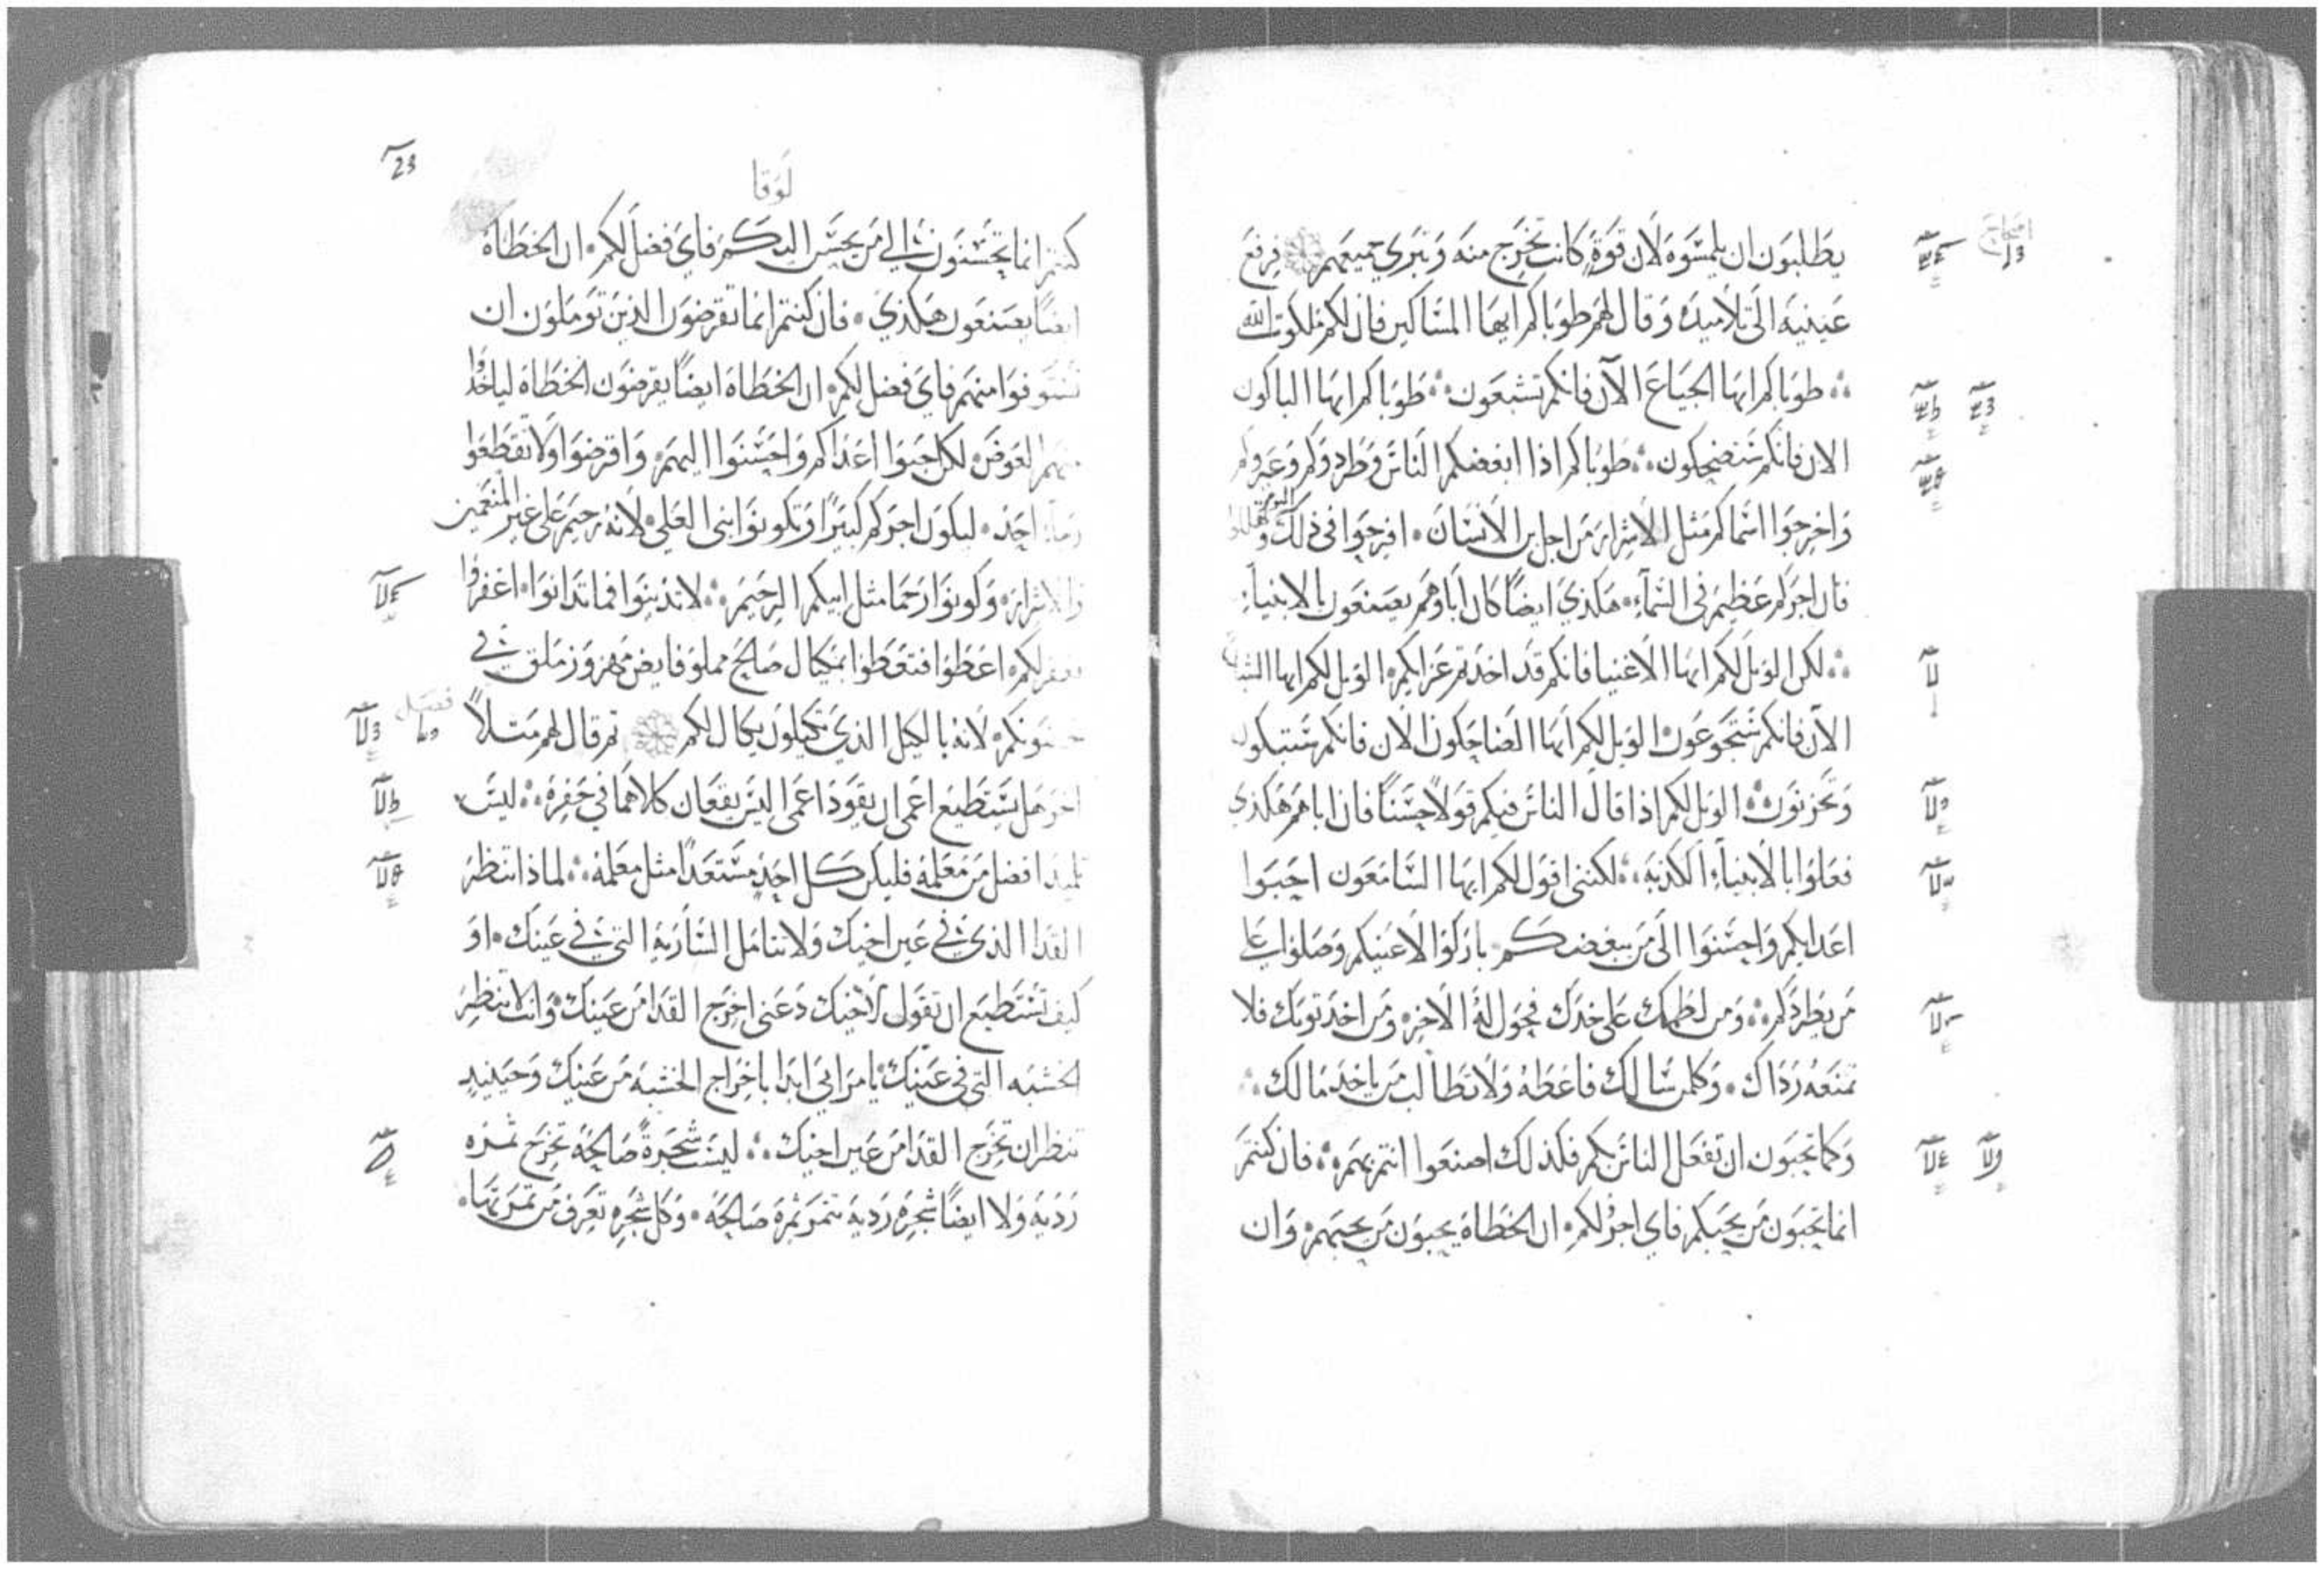 يطلبون ان يلمسوه لان قوة كانت تخرج منه وتبري جميعهم فرفع
عينيه الى تلاميده وقال لهم طوباكم ايها المساكين فان لكم ملكوت الله
طوباكم ايها الجياع الآن فانكم تشبعون طوباكم ايها الباكون
الان فانكم ستضحكون طوباكم اذا ابغضكم الناس وطردوكم وعيروكم
واخرجوا اسماكم مثل الاشرار من اجل ابن الانسان افرحوا فى ذلك اليوم وتهللوا
فان اجركم عظيم فى السماء هكذي ايضا كان اباوهم يصنعون بالانبياء
لكن الويل لكم ايها الاغنيا فانكم قد اخدتم عزايكم الويل لكم ايها الشباع
الآن فانكم ستجوعون الويل لكم ايها الضاحكون الان فانكم ستبكون
وتحزنون الويل لكم اذا قال الناس فيكم قولاً حسناً فان اباهم هكذي
فعلوا بالانبياء الكذبه لكننى اقول لكم ايها السامعون احبوا
اعدايكم واحسنوا الى من يبغضكم باركوا لاعنيكم وصلوا على
من يطردكم ومن لطمك على خدك فحول له الاخر ومن اخد توبك فلا
تمنعه رداك وكلمن سالك فاعطه ولا تطالب من ياخد مالك
وكما تحبون ان تفعل الناس بكم فكذلك اصنعوا انتم بهم فان كنتم
انما تحبون من يحبكم فاي اجر لكم ان الخطاة يحبون من يحبهم وان
23
لوقا
كنتم انما تحسنون الي من يحسن اليكم فاي فضل لكم ان الخطاة
ايضاً يصنعون هكذي فان كنتم انما تقرضون الذين توملون ان
تستوفوا منهم فاي فضل لكم ان الخطاة ايضاً يقرضون الخطاة لياخدوا
منهم العوض لكن احبوا اعداكم واحسنوا اليهم واقرضوا ولا تقطعوا
رجاء احد ليكون اجركم كبيراً وتكونوا بنى العلي لانه رحيم على غير المنعمين
والاشرار وكونوا رحما مثل ابيكم الرحيم لا تدينوا فما تدانوا اغفروا
يغفر لكم اعطوا فتعطوا بمكيال صالح مملو فايض مهزوز ملقى في
حضونكم لانه بالكيل الذي تكيلون يكال لكم ثم قال لهم مثلاً فصل
اخر هل يستطيع اعمى ان يقود اعمى اليس يقعان كلاهما في حفرة ليس
تلميد افضل من معلمه فليكن كل احد مستعداً مثل معلمه لماذا تنظر
القدا الذي في عين اخيك ولا تتامل السارية التى في عينك او
كيف تستطيع ان تقول لاخيك دعنى اخرج القدا من عينك وانت لا تنظر
الخشبه التى فى عينك يا مرايي ابدا باخراج الخشبه من عينك وحينيد
تنظر ان تخرج القدا من عين اخيك ليس شجرةً صالحة تخرج ثمره
رديه ولا ايضاً شجره رديه تثمر ثمرة صالحه وكل شجره تعرف من ثمرتها